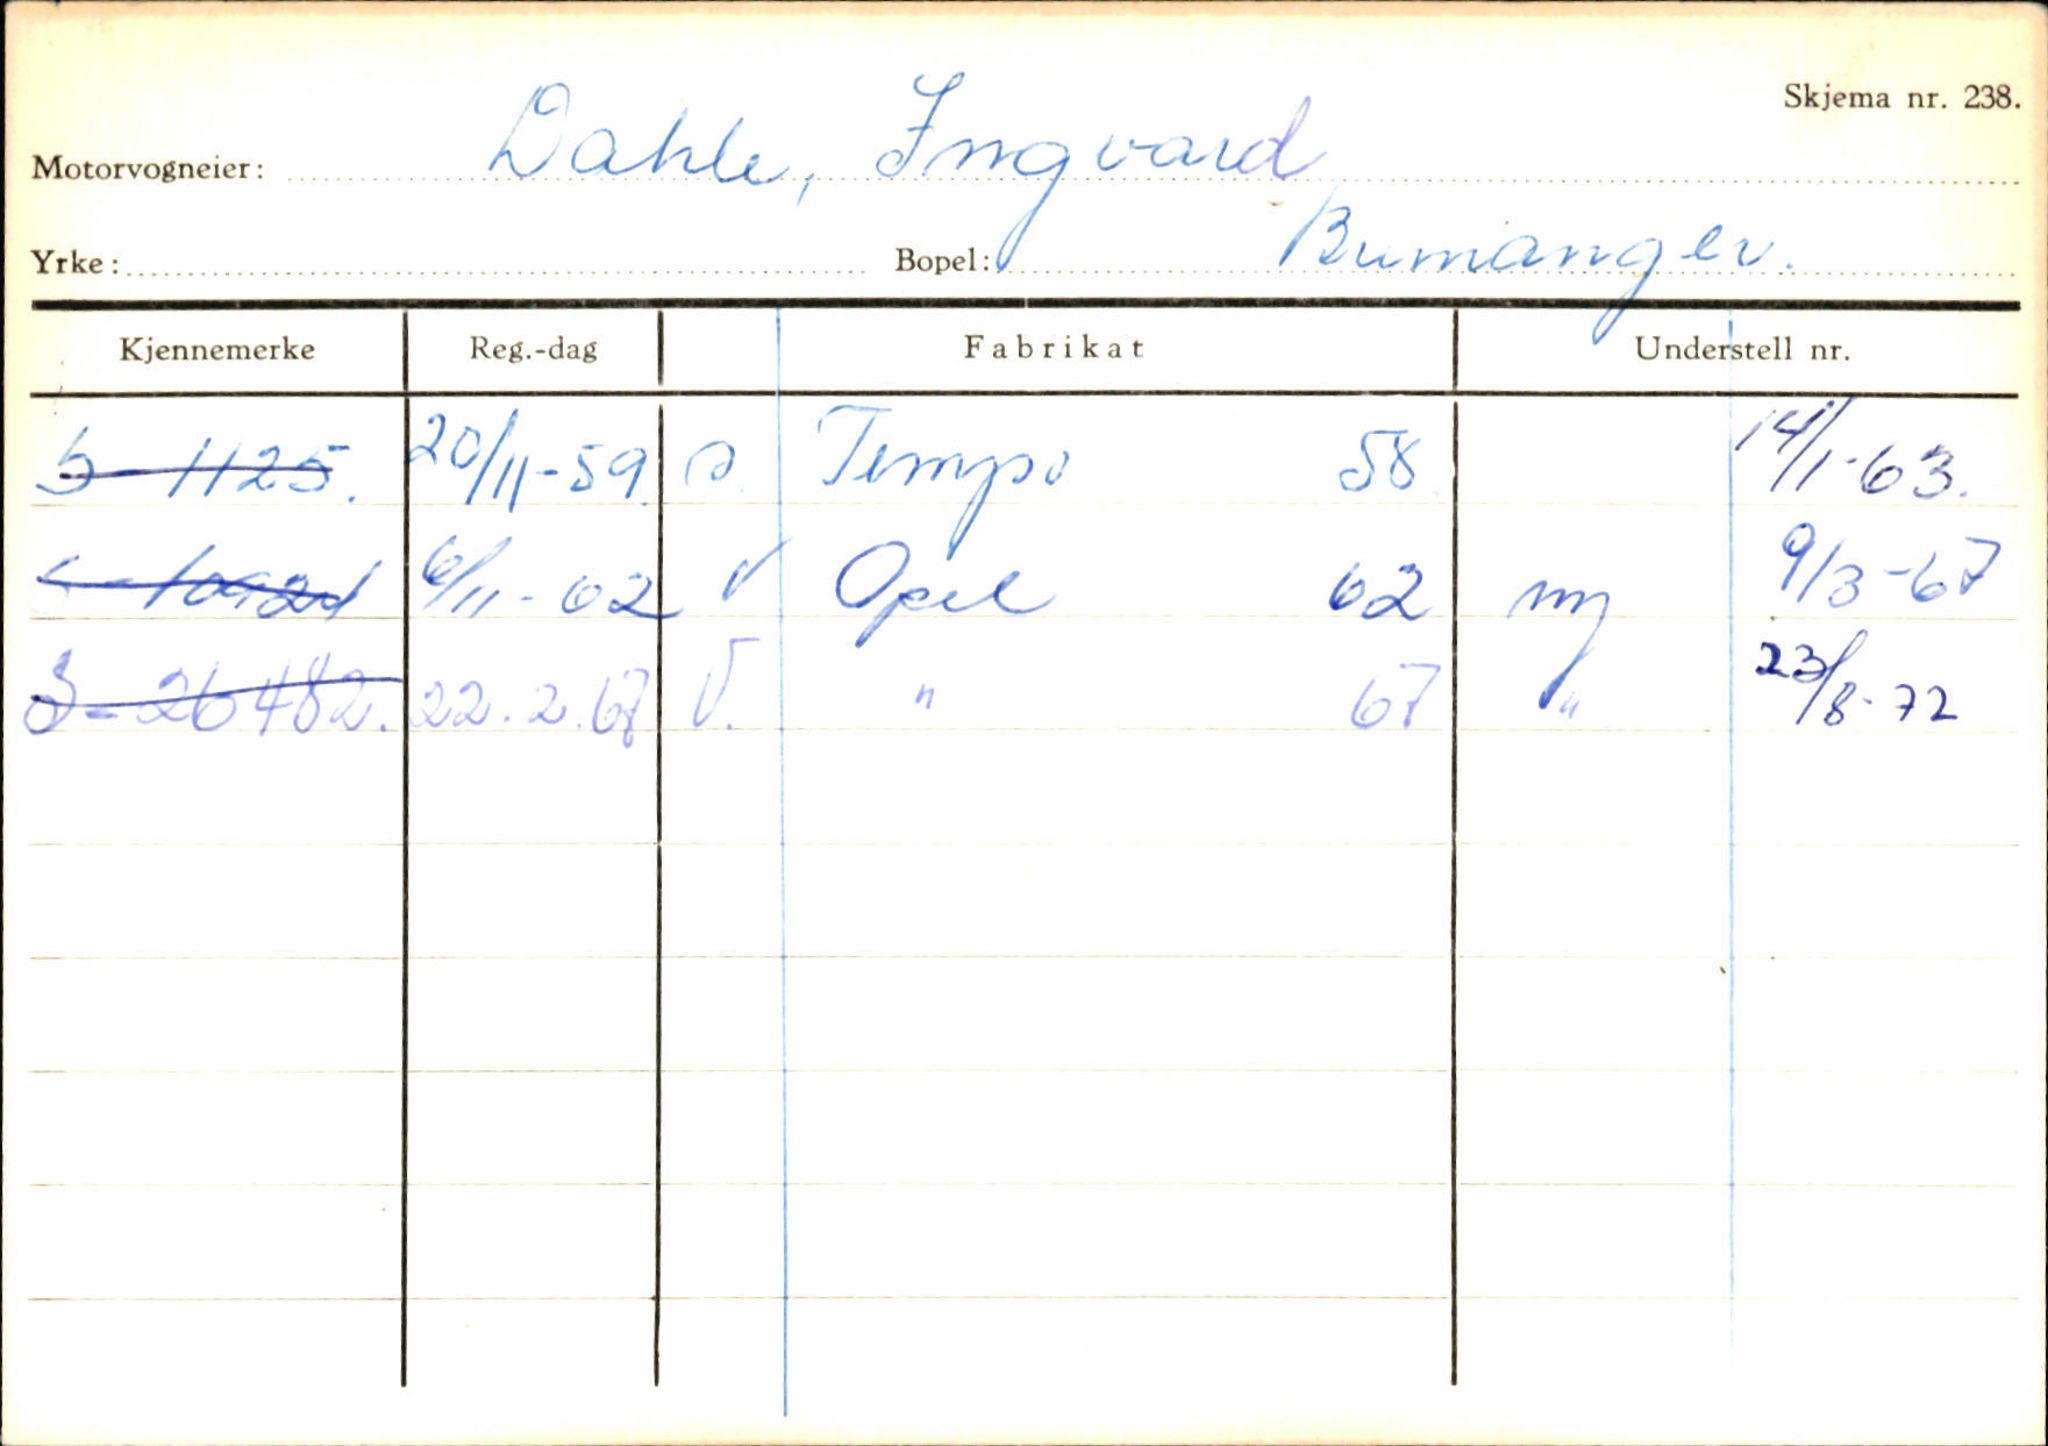 Skjema nr. 238.
Motorvogneier: Dahle, Ingvard
Yrke: Bopel: Bremanger.
Kjennemerke Reg.-dag Fabrikat Understell nr.
S-1125. 20/11-59. Tempo 58 14/1-63.
6/11-62 V Opel 62 ny 9/3-67
S-26482. 22.2.67 V. " 67 " 23/8-72